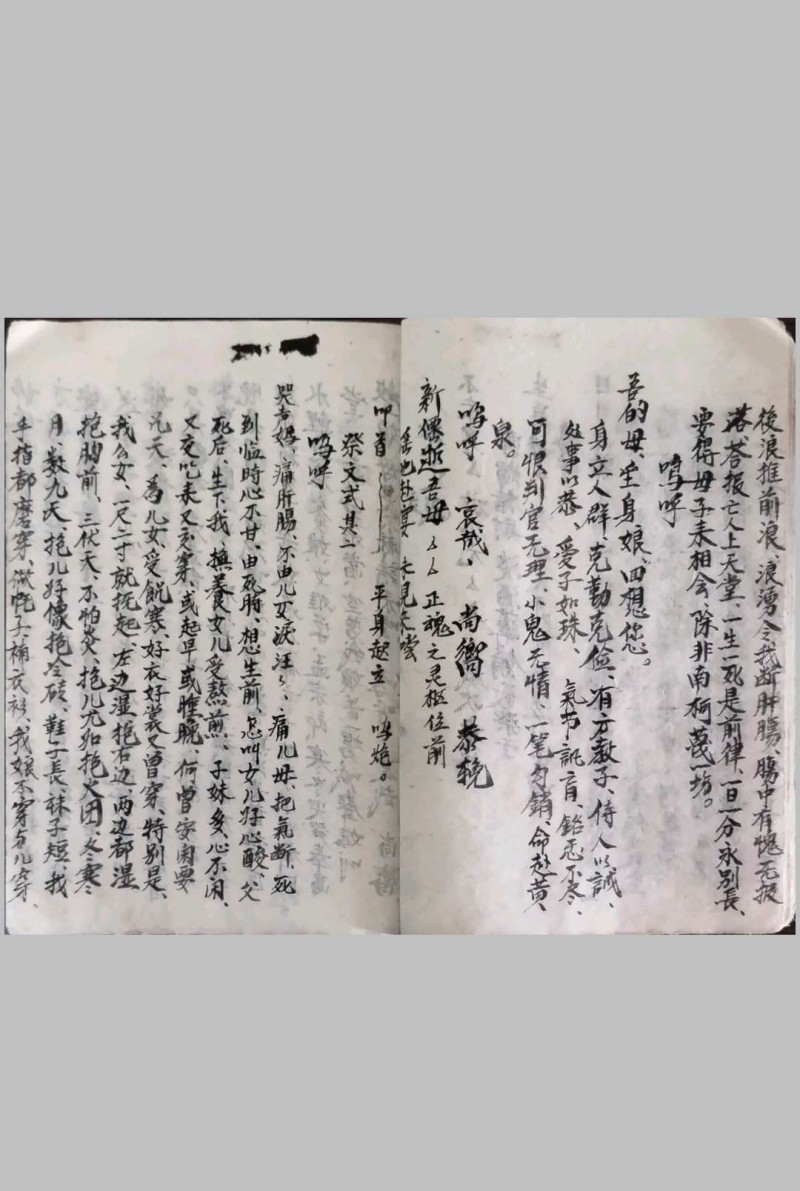 後浪推前浪、浪湧令我断肝腸、腸中有愧无报
荅报亡人上天堂、一生一死是前律、一旦一分永别長、
要得母子来相会、除非南柯夢一坊。
嗚呼
吾的母、生身娘、回想您。
身立人群、克勤克儉、有方教子、侍人以誠、
处事以恭、愛子如珠、
可恨判官无理、小鬼无情、一笔勾銷、命赴黄、
泉。
嗚呼 哀哉、 尚嚮 恭輓
新偃逝吾母ㄑㄑ正魂之灵柩位前
叩首 平身起立 鸣炮。
祭文式其二
嗚呼
哭声妈、痛肝腸、不由儿女淚汪ㄑ、痛儿母、把氣断、死
到临時心不甘、由死時、想生前、怎叫女儿好心酸、父
死后、生下我、撫養女儿受熬煎、子妹多、心不闲、
又交吃来又交穿、或起早或睡晚、何曾安闲要
几天、為儿女、受飢寒、好衣好裳又曾穿、特别是、
我么女、一尺二寸就抚起、左边湿、抱右边、两边都湿
抱胸前、三伏天、不怕炎、抱儿尤如抱火团、冬寒
月、数九天、抱儿好像抱冷磚、鞋子長、袜子短、我
手指都磨穿、做鞋子、補衣衫、我娘不穿与儿穿、